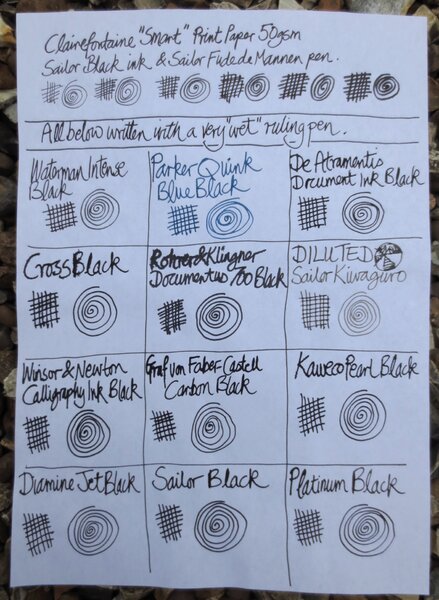 Clairefontaine "Smart" Print Paper 50gsm
Sailor Black ink & Sailor Fude de Mannen pen.
All below written with a very "wet" ruling pen.
Waterman Intense
Black
Parker Quink
Blue Black
De Atramentis
Document Ink Black
Cross Black
Rohrer & Klingner
Documentus 700 Black
DILUTED
Sailor Kiwaguro
Winsor & Newton
Calligraphy Ink Black
Graf von Faber-Castell
Carbon Black
Kaweco Pearl Black
Diamine Jet Black
Sailor Black
Platinum Black